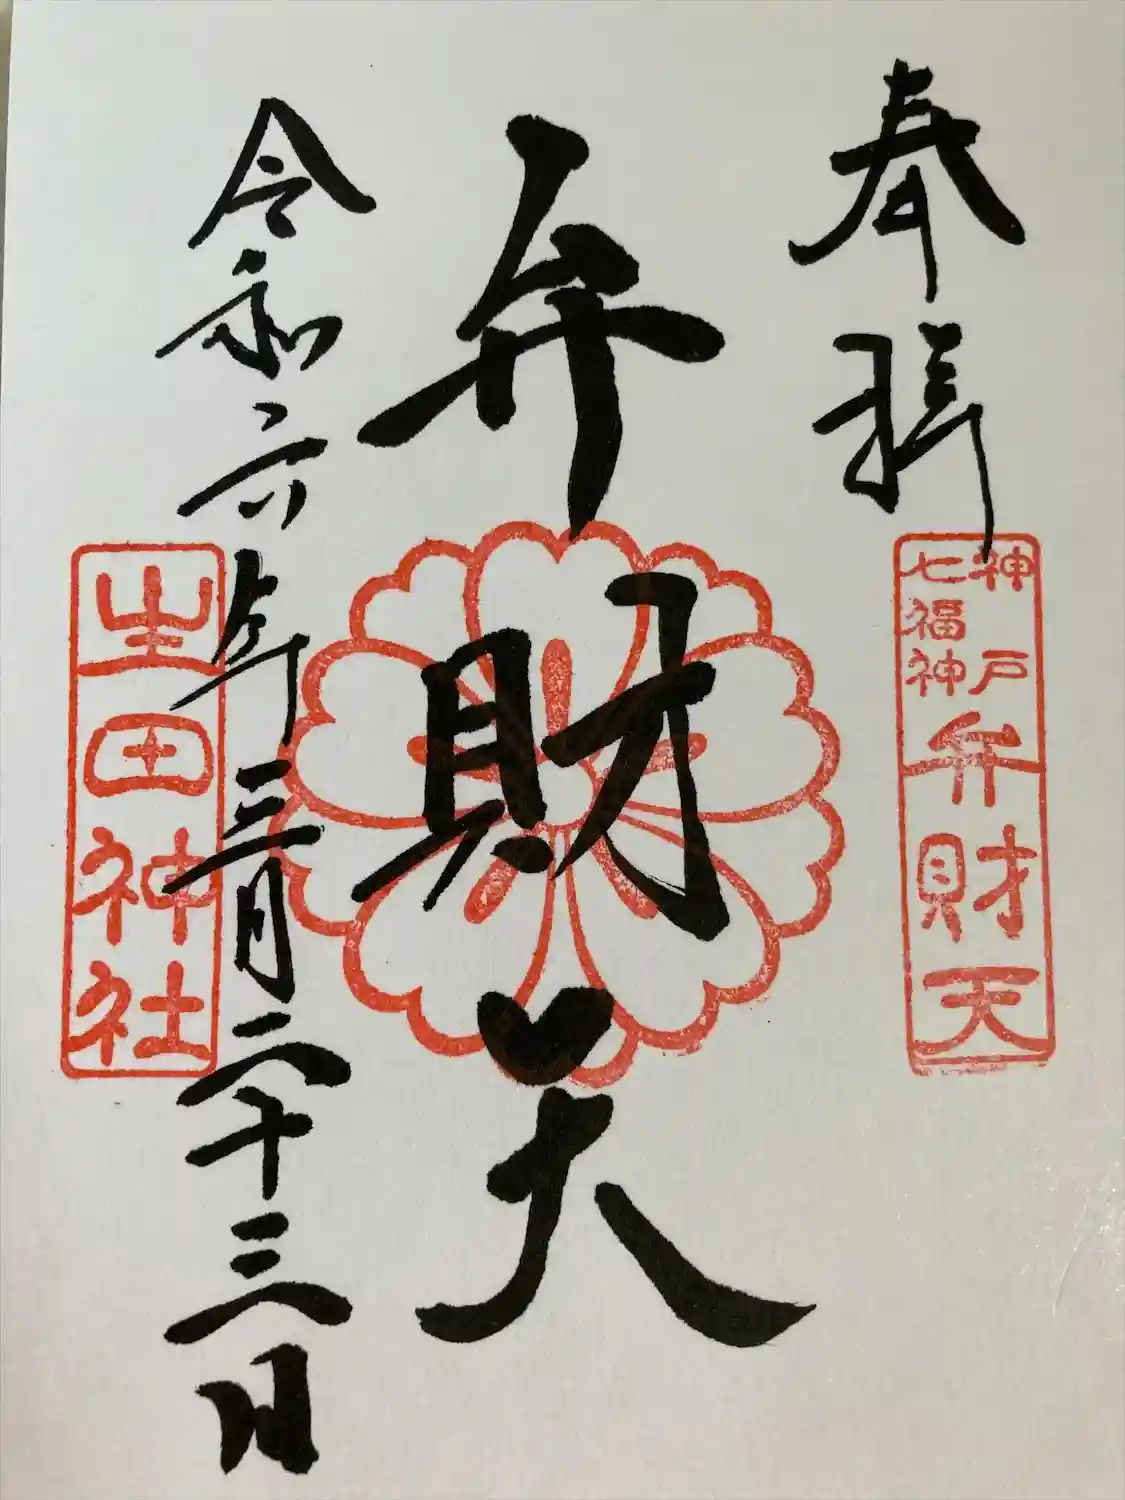 奉拝
神戸
七福神
弁財天
弁財天
令和六年三月二十三日
生田神社